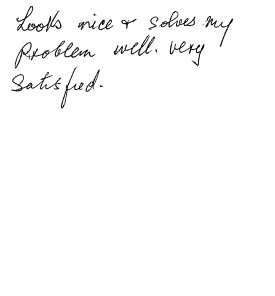 Looks nice & solves my
problem well. very
Satisfied.